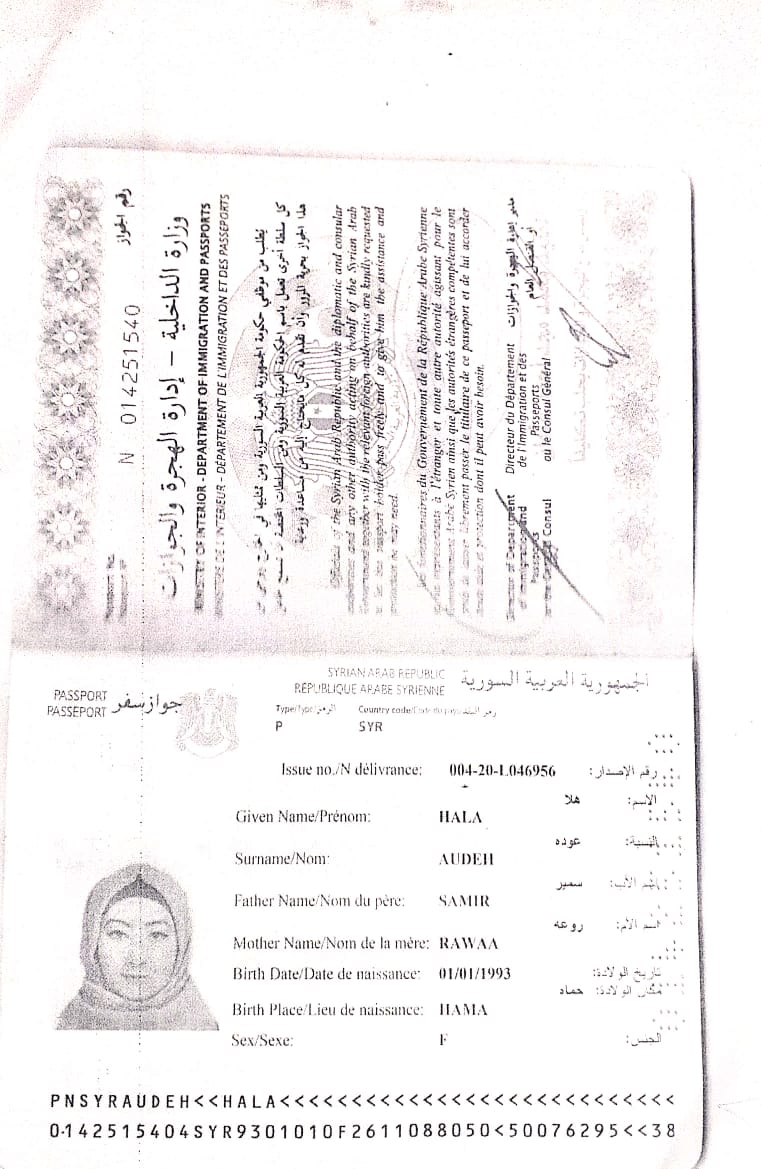 رقم الجواز
N 014251540
وزارة الداخلية - إدارة الهجرة والجوازات
MINISTRY OF INTERIOR - DEPARTMENT OF IMMIGRATION AND PASSPORTS
MINISTÈRE DE L'INTERIEUR - DÉPARTEMENT DE L'IMMIGRATION ET DES PASSEPORTS
يطلب من موظفي حكومة الجمهورية العربية السورية ومن ممثليها في الخارج
كل سلطة أخرى تعمل باسم الحكومة العربية السورية ومن السلطات المختصة
هذا الجواز بحرية المرور وأن تقدم له كل ما يحتاج إليه من مساعدة ورعاية
Officials of the Syrian Arab Republic and the diplomatic and consular
and any other authority acting on behalf of the Syrian Arab
Government together with the relevant foreign authorities are kindly requested
to let the passport holder pass freely and to give him the assistance and
protection he may need.
Les fonctionnaires du Gouvernement de la République Arabe Syrienne
représentants à l'étranger et toute autre autorité agissant pour le
Gouvernement Arabe Syrien ainsi que les autorités étrangères compétentes sont
de laisser librement passer le titulaire de ce passeport et de lui accorder
aide et protection dont il peut avoir besoin.
Director of Department
of Immigration and
Passports
Consul
Directeur du Département
de l'Immigration et des
Passeports
ou le Consul Général
مدير إدارة الهجرة والجوازات
أو القنصل العام
PASSPORT
PASSEPORT
جواز سفر
SYRIAN ARAB REPUBLIC
RÉPUBLIQUE ARABE SYRIENNE
الجمهورية العربية السورية
Type/Type/الرمز Country code/Code du pays/رمز البلد
P SYR
Issue no./N délivrance: 004-20-L046956 رقم الإصدار:
هلا الاسم:
Given Name/Prénom: HALA
عوده النسبة:
Surname/Nom: AUDEH
سمير اسم الأب:
Father Name/Nom du père: SAMIR
روعه اسم الأم:
Mother Name/Nom de la mère: RAWAA
Birth Date/Date de naissance: 01/01/1993 تاريخ الولادة:
حماه مكان الولادة:
Birth Place/Lieu de naissance: HAMA
Sex/Sexe: F الجنس:
PNSYRAUDEH<<HALA<<<<<<<<<<<<<<<<<<<<<<<<<<<<
0142515404SYR9301010F2611088050<50076295<<38